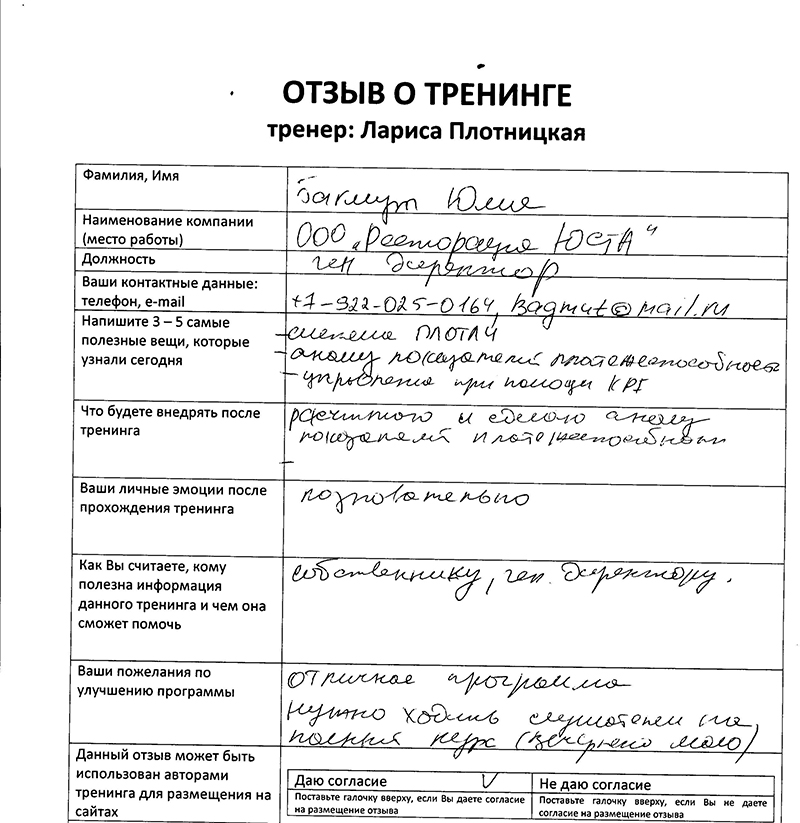 ОТЗЫВ О ТРЕНИНГЕ
тренер: Лариса Плотницкая
Фамилия, Имя
Багмут Юлия
Наименование компании
(место работы)
ООО „Ресторация ЮСТА"
Должность
ген директор
Ваши контактные данные:
телефон, e-mail
+7-922-025-0164, bagmut@mail.ru
Напишите 3 – 5 самые
полезные вещи, которые
узнали сегодня
-система
-анализ показателей платежеспособности
-управление при помощи KPI
Что будете внедрять после
тренинга
расчитаю и сделаю анализ
показателей платежеспособности
-
Ваши личные эмоции после
прохождения тренинга
познавательно
Как Вы считаете, кому
полезна информация
данного тренинга и чем она
сможет помочь
собственнику, ген. директору.
Ваши пожелания по
улучшению программы
отличная программа
нужно ходить слушателем на
полный курс (вечернего мало)
Данный отзыв может быть
использован авторами
тренинга для размещения на
сайтах
Даю согласие V
Не даю согласие
Поставьте галочку вверху, если Вы даете согласие
на размещение отзыва
Поставьте галочку вверху, если Вы не даете
согласие на размещение отзыва